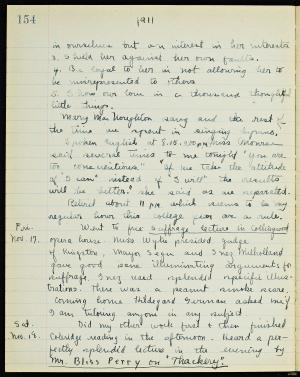 154
1911
in ourselves but an interest in her interests
3. I held her against her own faults.
4. Be loyal to her in not allowing her to
be misrepresented to others
5. Show our love in a thousand thoughtful
little things.
Mary MacNoughton sang and the rest of
the time we spent in singing hymns.
English at 8.15. Miss
said several times to me tonight "you are
too conscientious" "If we take the "attitude
of "I can" instead of "I will" the results
will be better." she said as we separated.
Retired about 11 pm which seems to be my
regular hour this college year as a rule.
Fri.
Nov. 17.
Went to free Suffrage lecture in Collingwood
opera house. Miss Wylie presided. Judge
of Kingston, Mayor Sague and Inez Mulholland
gave good sane illuminating arguments for
suffrage. Inez used splendid specific illus-
trations. There was a peanut smoke scare.
Coming home Hildegard asked me if
I am tutoring anyone in any subject
Sat.
Nov. 18.
Did my other work first & then finished
Coleridge reading in the afternoon. Heard a per-
fectly splendid lecture in the evening by
Mr. Bliss Perry on "Thackery".